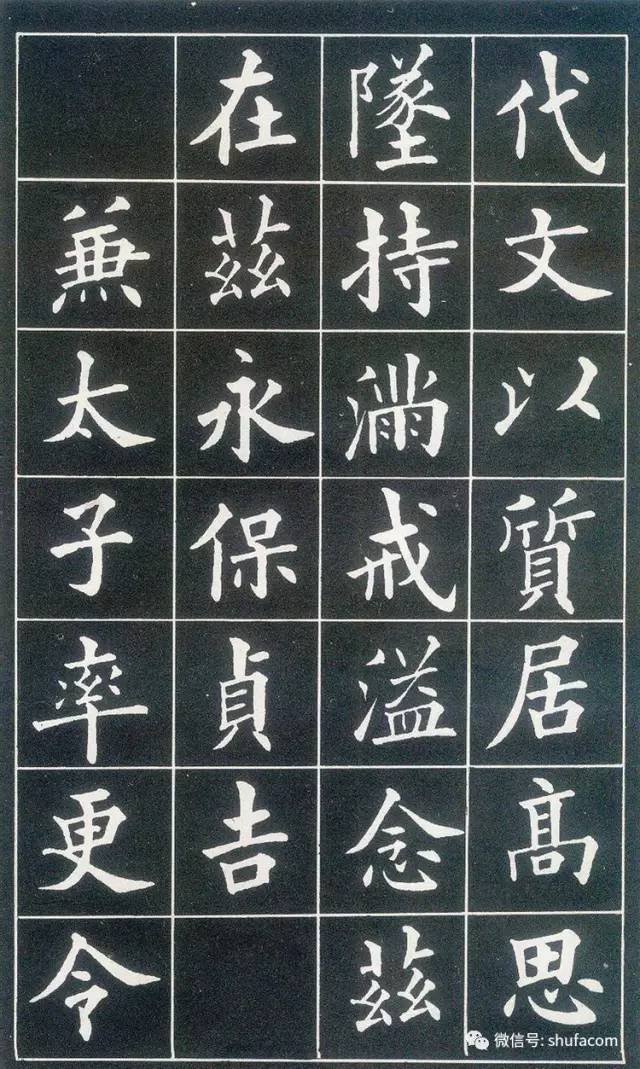 代文以質居高思
墜持滿戒溢念茲
在茲永保貞吉
兼太子率更令
微信号: shufacom